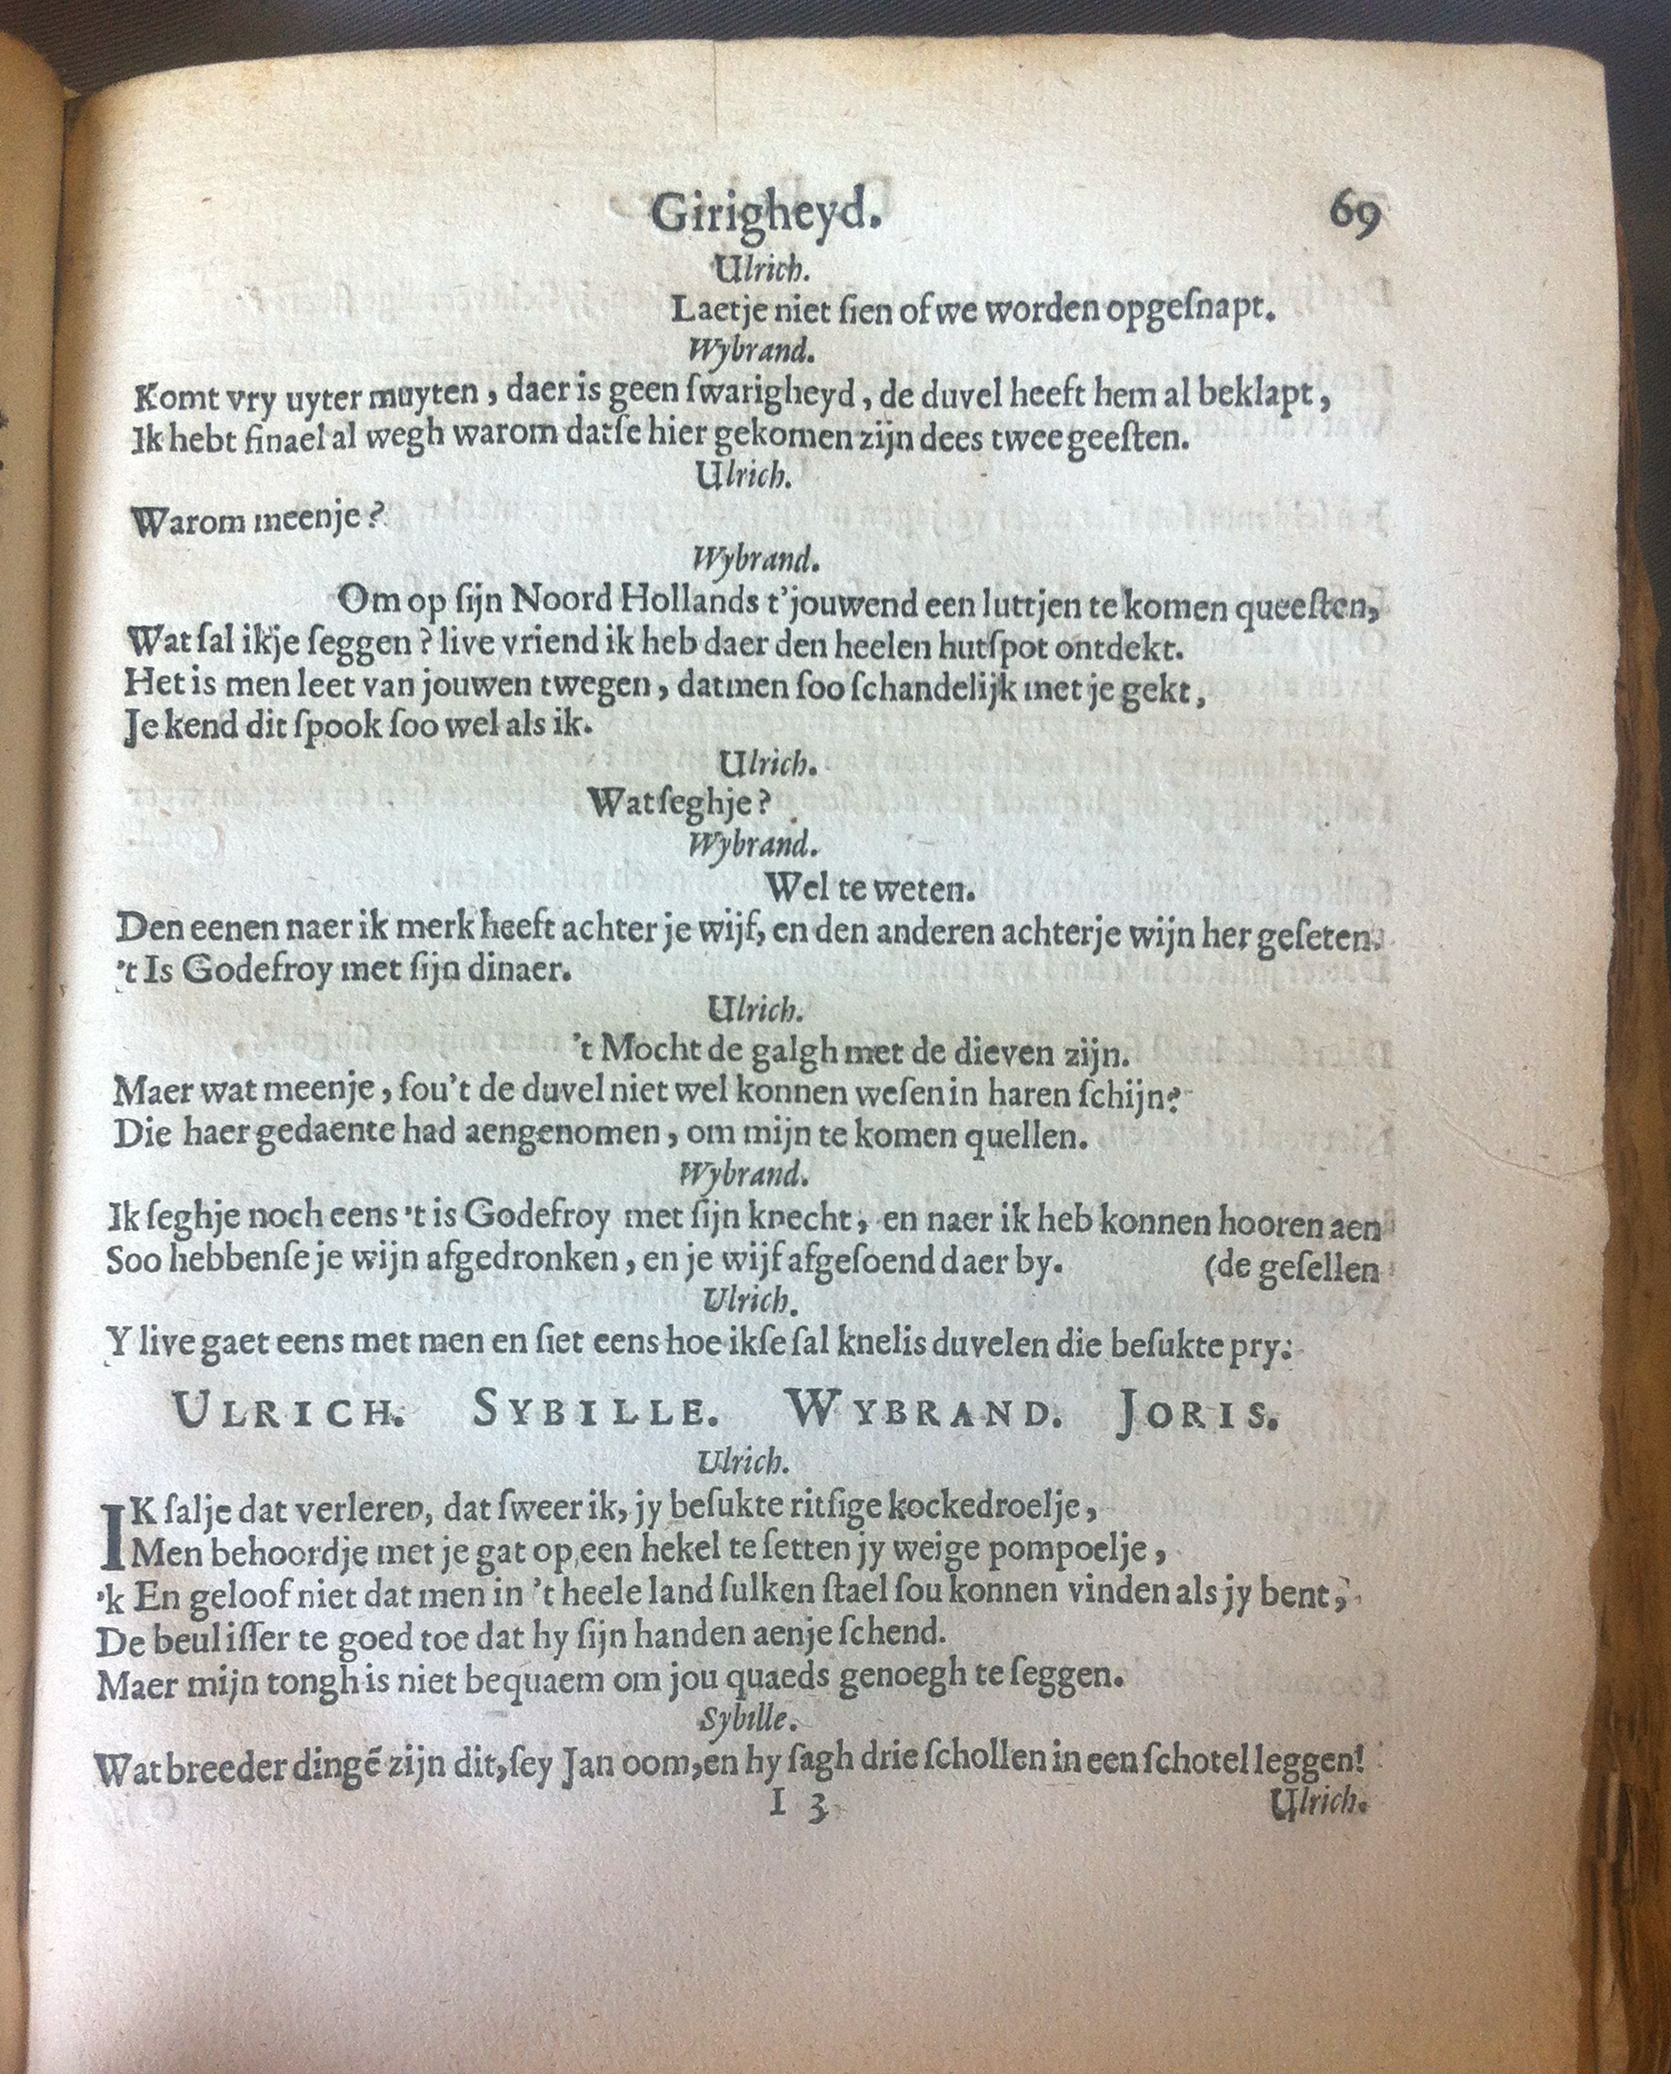 Girigheyd. 69
Ulrich.
Laetje niet ſien of we worden opgeſnapt.
Wybrand.
Komt vry uyter muyten, daer is geen ſwarigheyd, de duvel heeft hem al beklapt,
Ik hebt finael al wegh warom datſe hier gekomen zijn dees twee geeſten.
Ulrich.
Warom meenje?
Wybrand.
Om op ſijn Noord Hollands t'jouwend een luttjen te komen queeſten,
Wat ſal ikje ſeggen? live vriend ik heb daer den heelen hutſpot ontdekt.
Het is men leet van jouwen twegen, datmen ſoo ſchandelijk met je gekt,
Je kend dit ſpook ſoo wel als ik.
Ulrich.
Wat ſeghje?
Wybrand.
Wel te weten.
Den eenen naer ik merk heeft achter je wijf, en den anderen achterje wijn her geſeten.
't Is Godefroy met ſijn dinaer.
Ulrich.
't Mocht de galgh met de dieven zijn.
Maer wat meenje, ſou't de duvel niet wel konnen weſen in haren ſchijn?
Die haer gedaente had aengenomen, om mijn te komen quellen.
Wybrand.
Ik ſeghje noch eens 't is Godefroy met ſijn knecht, en naer ik heb konnen hooren aen
Soo hebbenſe je wijn afgedronken, en je wijf afgeſoend daer by. (de geſellen
Ulrich.
Y live gaet eens met men en ſiet eens hoe ikſe ſal knelis duvelen die beſukte pry:
ULRICH. SYBILLE. WYBRAND. JORIS.
Ulrich.
IK ſalje dat verleren, dat ſweer ik, jy beſukte ritſige kockedroelje,
Men behoordje met je gat op een hekel te ſetten jy weige pompoelje,
'k En geloof niet dat men in 't heele land ſulken ſtael ſou konnen vinden als jy bent,
De beul iſſer te goed toe dat hy ſijn handen aenje ſchend.
Maer mijn tongh is niet bequaem om jou quaeds genoegh te ſeggen.
Sybille.
Wat breeder dingẽ zijn dit, ſey Jan oom, en hy ſagh drie ſchollen in een ſchotel leggen!
I 3 Ulrich.